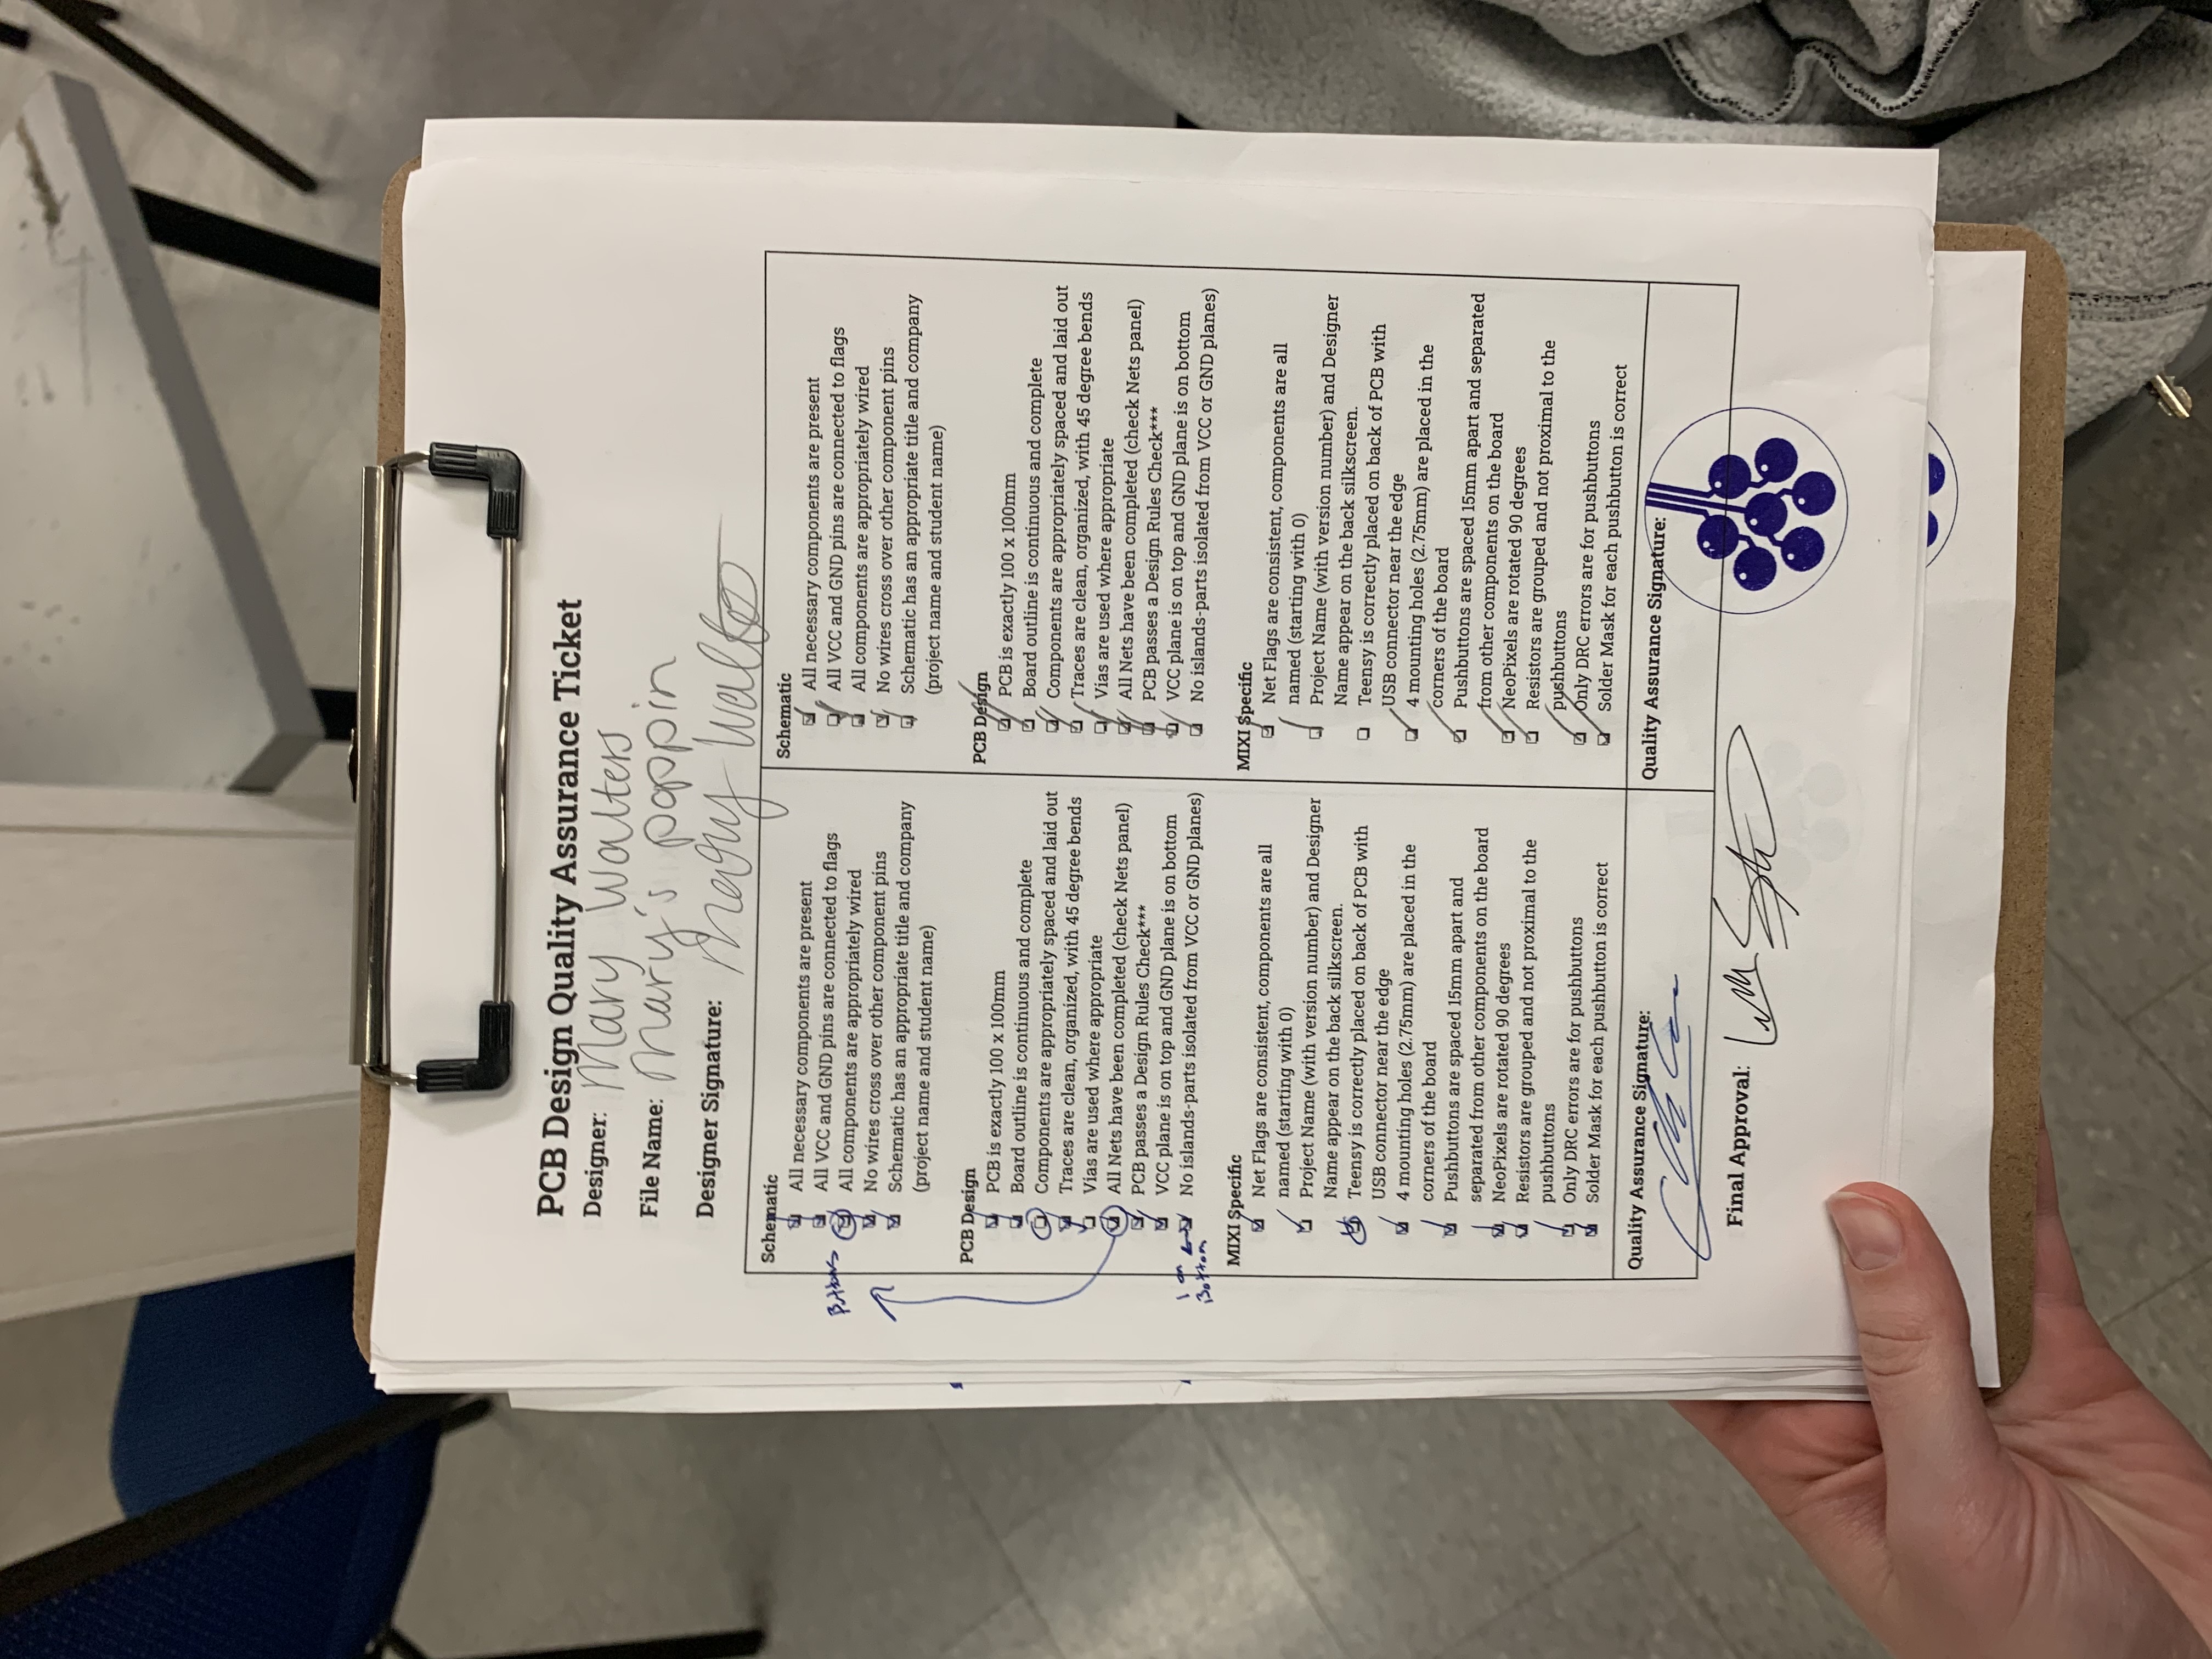 PCB Design Quality Assurance Ticket
Designer: Mary Walters
File Name: Mary's poppin
Designer Signature: Mary Walters
Schematic
All necessary components are present
All VCC and GND pins are connected to flags
Buttons
All components are appropriately wired
No wires cross over other component pins
Schematic has an appropriate title and company
(project name and student name)
PCB Design
PCB is exactly 100 x 100mm
Board outline is continuous and complete
Components are appropriately spaced and laid out
Traces are clean, organized, with 45 degree bends
Vias are used where appropriate
All Nets have been completed (check Nets panel)
PCB passes a Design Rules Check***
VCC plane is on top and GND plane is on bottom
1 on
Bottom
No islands-parts isolated from VCC or GND planes)
MIXI Specific
Net Flags are consistent, components are all
named (starting with 0)
Project Name (with version number) and Designer
Name appear on the back silkscreen.
Teensy is correctly placed on back of PCB with
USB connector near the edge
4 mounting holes (2.75mm) are placed in the
corners of the board
Pushbuttons are spaced 15mm apart and
separated from other components on the board
NeoPixels are rotated 90 degrees
Resistors are grouped and not proximal to the
pushbuttons
Only DRC errors are for pushbuttons
Solder Mask for each pushbutton is correct
Quality Assurance Signature:
Schematic
All necessary components are present
All VCC and GND pins are connected to flags
All components are appropriately wired
No wires cross over other component pins
Schematic has an appropriate title and company
(project name and student name)
PCB Design
PCB is exactly 100 x 100mm
Board outline is continuous and complete
Components are appropriately spaced and laid out
Traces are clean, organized, with 45 degree bends
Vias are used where appropriate
All Nets have been completed (check Nets panel)
PCB passes a Design Rules Check***
VCC plane is on top and GND plane is on bottom
No islands-parts isolated from VCC or GND planes)
MIXI Specific
Net Flags are consistent, components are all
named (starting with 0)
Project Name (with version number) and Designer
Name appear on the back silkscreen.
Teensy is correctly placed on back of PCB with
USB connector near the edge
4 mounting holes (2.75mm) are placed in the
corners of the board
Pushbuttons are spaced 15mm apart and separated
from other components on the board
NeoPixels are rotated 90 degrees
Resistors are grouped and not proximal to the
pushbuttons
Only DRC errors are for pushbuttons
Solder Mask for each pushbutton is correct
Quality Assurance Signature:
Final Approval: